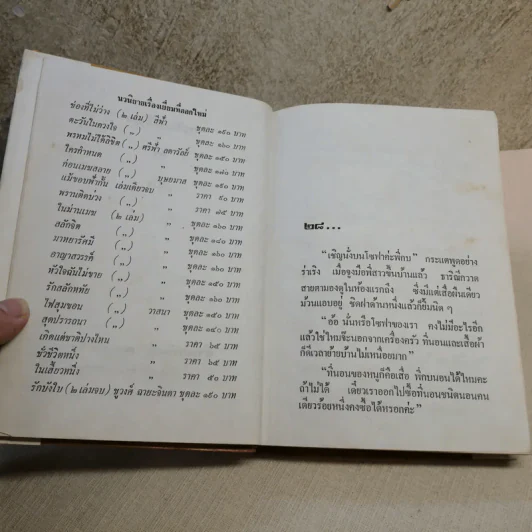 นวนิยายเรื่องเยี่ยมที่ออกใหม่
ช่องที่ไม่ว่าง (๒ เล่ม) สีฟ้า ชุดละ ๑๙๐ บาท
ตะวันในดวงใจ (,,) ,, ชุดละ ๑๖๐ บาท
พรหมไม่ได้ลิขิต (,,) ศรีฟ้า ลดาวัลย์ ชุดละ ๑๕๐ บาท
ใครกำหนด (,,) ,, ชุดละ ๑๘๐ บาท
ก่อนเมฆสลาย (,,) บุษยมาส ชุดละ ๑๙๐ บาท
แม้ขอบฟ้ากั้น เล่มเดียวจบ ,, ราคา ๙๐ บาท
พรานติดบ่วง ,, ราคา ๗๕ บาท
ในม่านเมฆ (๒ เล่ม) ,, ชุดละ ๑๖๐ บาท
สลักจิต (,,) ,, ชุดละ ๑๔๐ บาท
มาทยารัศมี (,,) ,, ชุดละ ๑๖๐ บาท
อาญาสวรรค์ (,,) ,, ชุดละ ๑๖๐ บาท
หัวใจฉันไม่ขาย (,,) ,, ชุดละ ๑๕๐ บาท
รักสลักหทัย (,,) ,, ชุดละ ๑๖๐ บาท
ไฟสุมขอน (,,) วาสนา ชุดละ ๑๕๐ บาท
สุดปรารถนา (,,) ,, ชุดละ ๑๘๐ บาท
เกิดแต่ชาติปางไหน ,, ราคา ๖๕ บาท
ชั่วชีวิตหนึ่ง ,, ราคา ๖๕ บาท
ในเสี้ยวหนึ่ง ,, ราคา ๕๐ บาท
รักบังใบ (๒ เล่มจบ) ชูวงศ์ ฉายะจินดา ชุดละ ๑๙๐ บาท
๒๘...
"เชิญนั่งบนโซฟาค่ะพี่กบ" กระแตพูดอย่าง
ร่าเริง เมื่อจูงมือพี่สาวขึ้นบ้านแล้ว ธาริณีกวาด
สายตามองดูในห้องแรกถึง ซึ่งมีแต่เสื่อผืนเดียว
ม้วนแอบอยู่ ชิดฝาด้านหนึ่งแล้วก็ยิ้มนิด ๆ
"อ้อ นั่นหรือโซฟาของเรา คงไม่มีอะไรอีก
แล้วใช่ไหมจ๊ะนอกจากเครื่องครัว ที่นอนและเสื้อผ้า
ก็ดีเวลาย้ายบ้านไม่เหนื่อยมาก"
"ที่นอนของหนูก็คือเสื่อ พี่กบนอนได้ไหมคะ
ถ้าไม่ได้ เดี๋ยวเราออกไปซื้อที่นอนชนิดนอนคน
เดียวร้อยหนึ่งคงซื้อได้หรอกค่ะ"